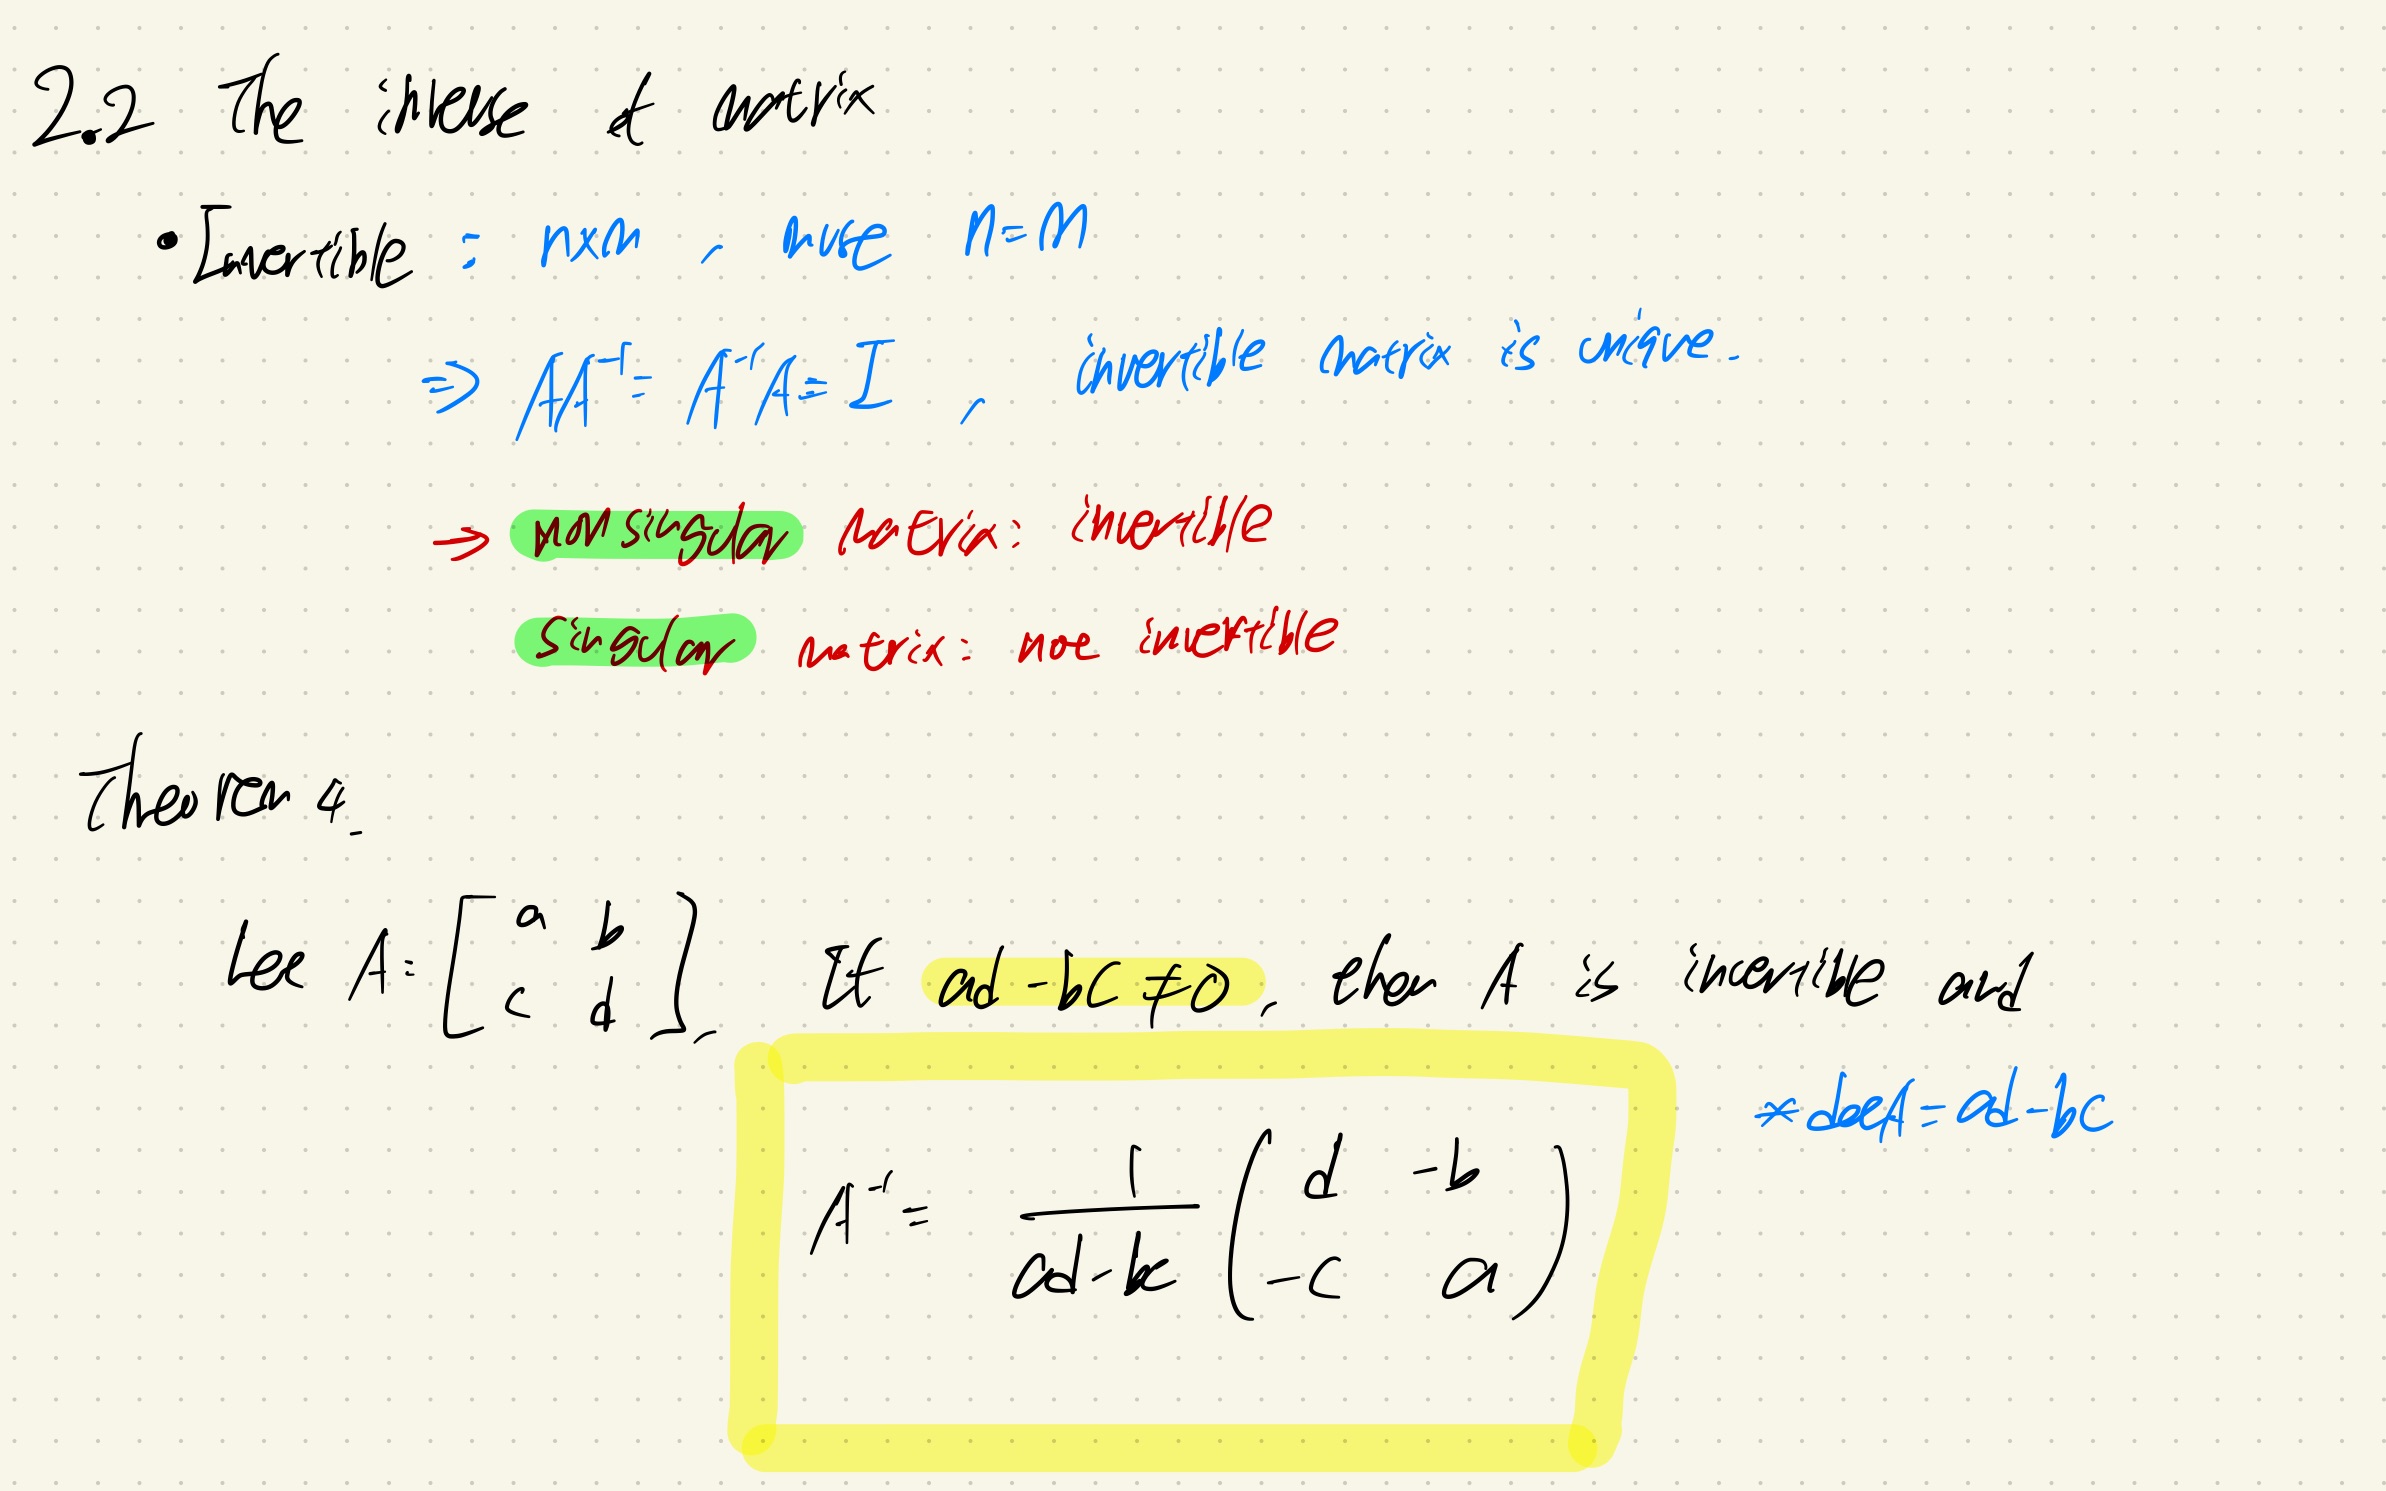 2.2 The inverse of matrix
• Invertible : nxm, must n=m
⇒ AA⁻¹ = A⁻¹A = I, invertible matrix is unique.
→ nonsingular matrix: invertible
singular matrix: not invertible
Theorem 4.
Let A = [a b
c d], If ad-bc≠0, then A is invertible and
*detA = ad-bc
A⁻¹ = 1/(ad-bc) (d -b
-c a)